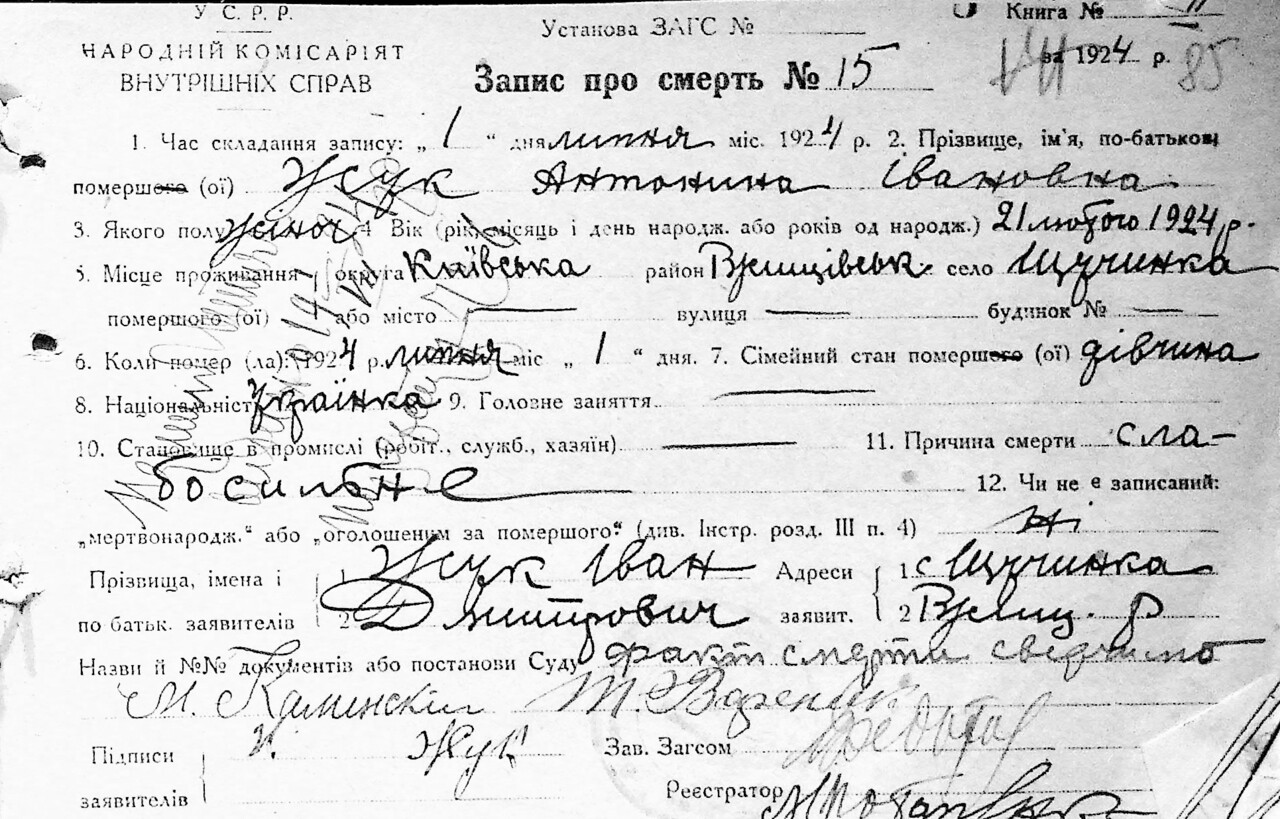 У.С.Р.Р.
Установа ЗАГС №
Книга №
НАРОДНІЙ КОМІСАРІЯТ
ВНУТРІШНІХ СПРАВ
за 1924 р.
85
Запис про смерть № 15
1. Час складання запису: „ 1 “ дня липня міс. 1924 р. 2. Прізвище, ім'я, по-батькові
помершого (ої) Жук Антонина Івановна
3. Якого полу жіноч. 4 Вік (рік, місяць і день народж. або років од народж.) 21 лютого 1924 р.
5. Місце проживання округа Київська район Ржищівськ. село Щучинка
помершого (ої) або місто вулиця будинок №
6. Коли помер (ла): 1924 р. липня міс „ 1 “ дня. 7. Сімейний стан помершого (ої) дівчина
8. Національність Українка 9. Головне заняття
10. Становище в промислі (робіт., служб., хазяїн) 11. Причина смерти сла-
босильне
12. Чи не є записаний:
„мертвонародж.“ або „оголошеним за помершого“ (див. Інстр. розд. III п. 4) ні
Прізвища, імена і 1 Жук Іван Адреси 1 с Щучинка
по батьк. заявителів 2 Дмитрович заявит. 2 Ржищ. р
Назви й №№ документів або постанови Суду факт смерти свідчимо
М. Каминский Т.
Підписи И. Жук Зав. Загсом Федотов
заявителів
Реєстратор Потапенко